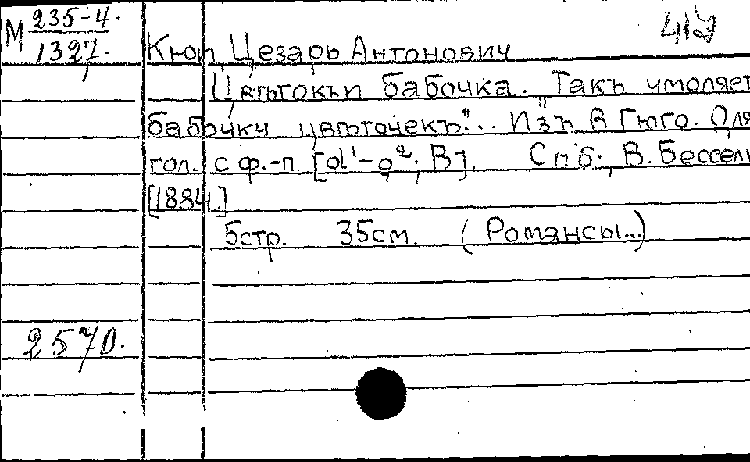 М 235-4. 417
1327.
Кюи, Цезарь Антонович
Цвѣтокъ и бабочка. "Такъ умоляет
бабочку цвѣточекъ"... Изъ В Гюго. Для
гол. с ф.-п [d¹-g²; B]. Спб., В. Бессель
[1884.]
5стр. 35см. (Романсы...)
2570.